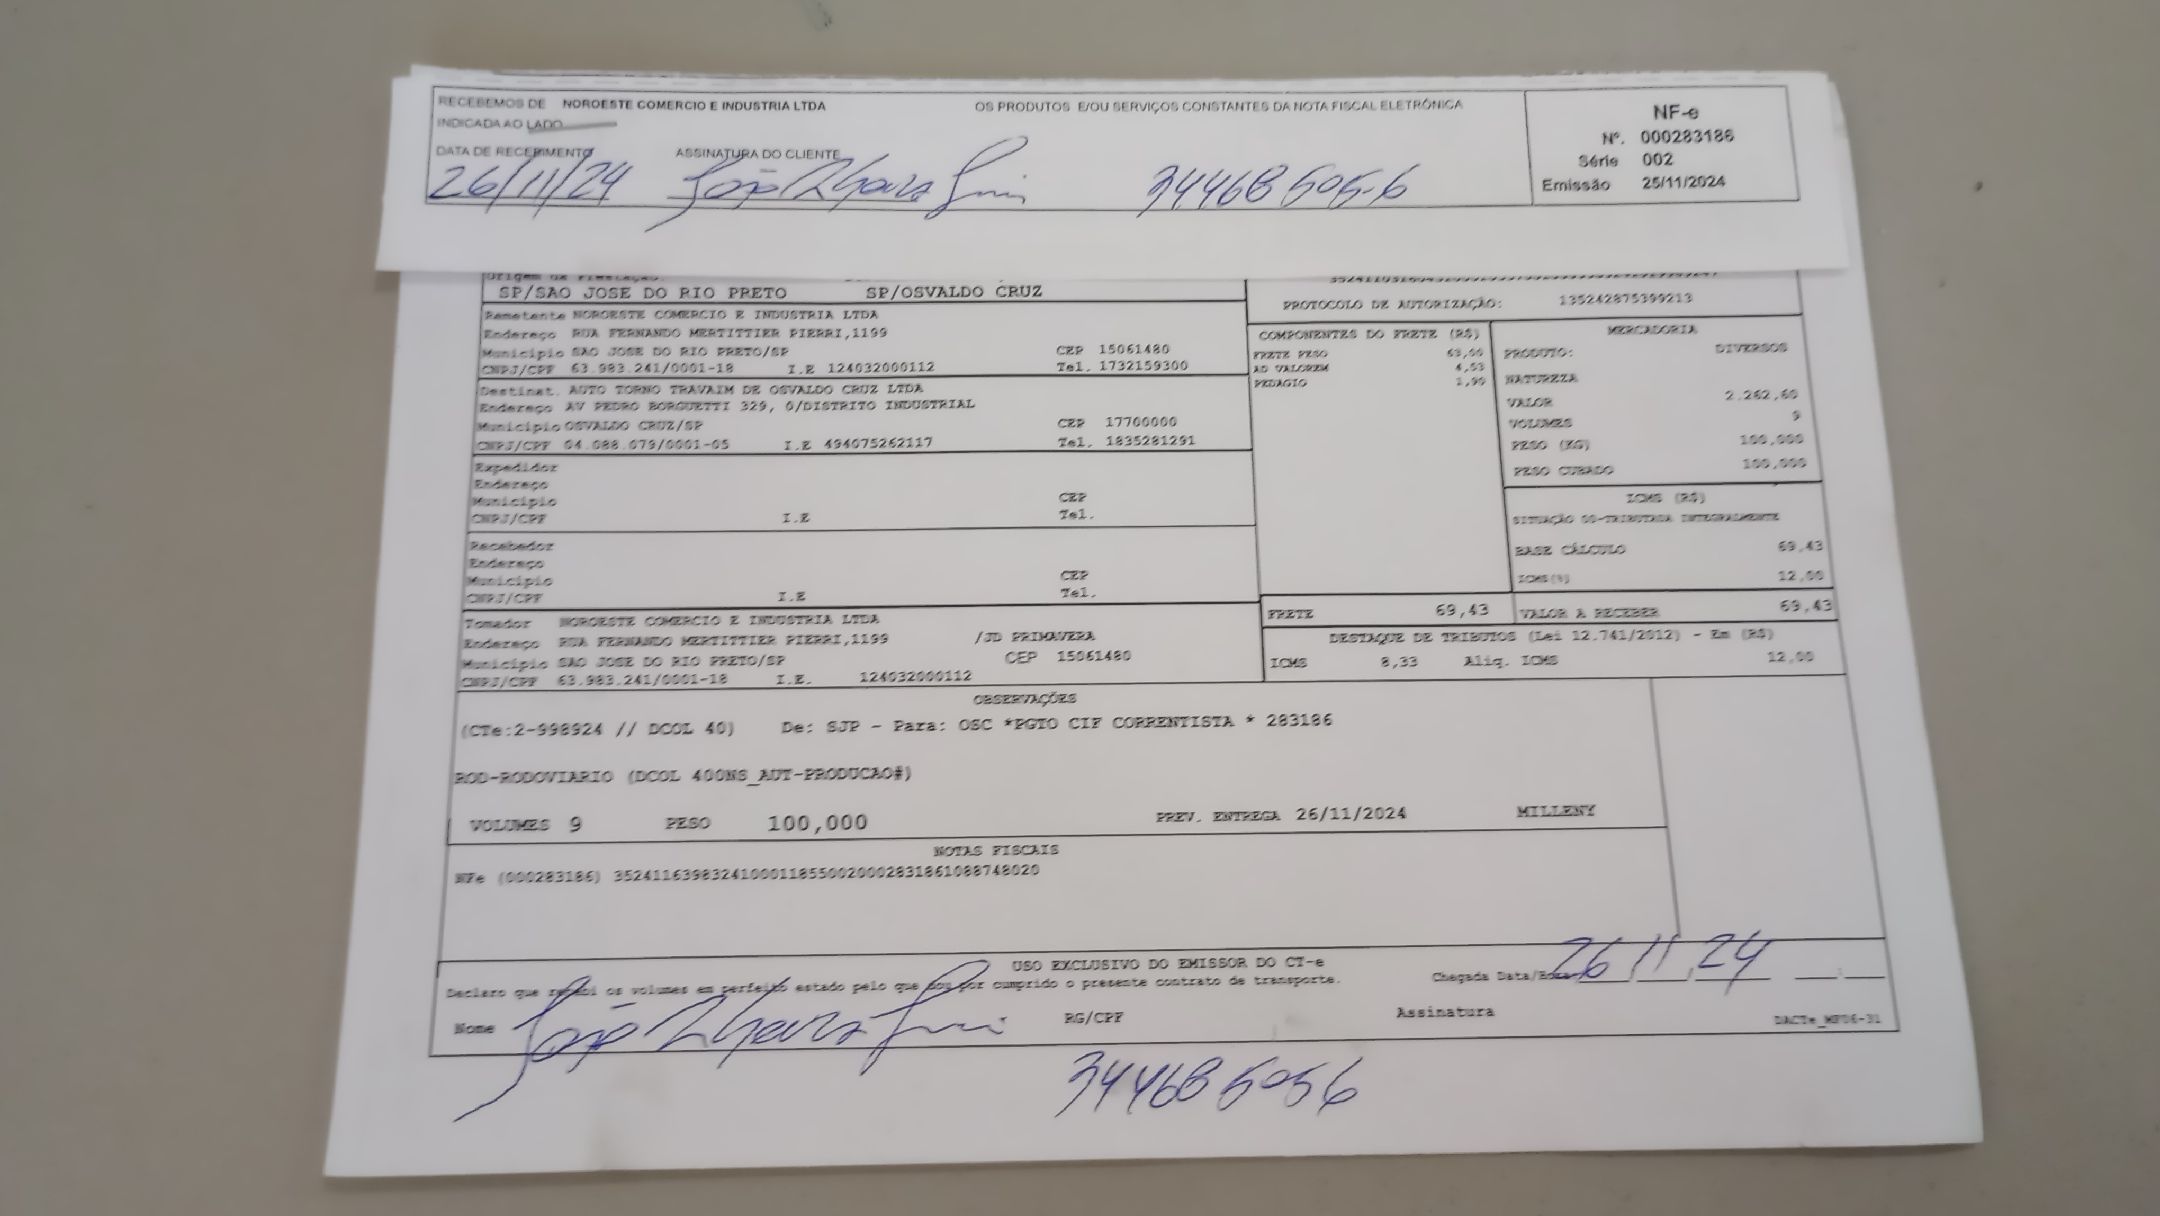 RECEBEMOS DE NOROESTE COMERCIO E INDUSTRIA LTDA OS PRODUTOS E/OU SERVIÇOS CONSTANTES DA NOTA FISCAL ELETRÔNICA
INDICADA AO LADO
DATA DE RECEBIMENTO ASSINATURA DO CLIENTE
26/11/24 João 34468505-6
NF-e
Nº. 000283186
Série 002
Emissão 25/11/2024
SP/SAO JOSE DO RIO PRETO SP/OSVALDO CRUZ
PROTOCOLO DE AUTORIZAÇÃO: 135242875399213
Remetente NOROESTE COMERCIO E INDUSTRIA LTDA
Endereço RUA FERNANDO MERTITTIER PIERRI,1199
Município SAO JOSE DO RIO PRETO/SP CEP 15061480
CNPJ/CPF 63.983.241/0001-18 I.E 124032000112 Tel. 1732159300
Destinat. AUTO TORNO TRAVAIM DE OSVALDO CRUZ LTDA
Endereço AV PEDRO BORGUETTI 329, 0/DISTRITO INDUSTRIAL
Município OSVALDO CRUZ/SP CEP 17700000
CNPJ/CPF 04.088.079/0001-05 I.E 494075262117 Tel. 1835281291
Expedidor
Endereço
Município CEP
CNPJ/CPF I.E Tel.
Recebedor
Endereço
Município CEP
CNPJ/CPF I.E Tel.
Tomador NOROESTE COMERCIO E INDUSTRIA LTDA
Endereço RUA FERNANDO MERTITTIER PIERRI,1199 /JD PRIMAVERA
Município SAO JOSE DO RIO PRETO/SP CEP 15061480
CNPJ/CPF 63.983.241/0001-18 I.E. 124032000112
COMPONENTES DO FRETE (R$)
FRETE PESO 63,00
AD VALOREM 4,53
PEDAGIO 1,90
MERCADORIA
PRODUTO: DIVERSOS
NATUREZA
VALOR 2.262,60
VOLUMES 9
PESO (KG) 100,000
PESO CUBADO 100,000
ICMS (R$)
SITUAÇÃO 00-TRIBUTADA INTEGRALMENTE
BASE CÁLCULO 69,43
ICMS(%) 12,00
FRETE 69,43 VALOR A RECEBER 69,43
DESTAQUE DE TRIBUTOS (Lei 12.741/2012) - Em (R$)
ICMS 8,33 Aliq. ICMS 12,00
OBSERVAÇÕES
(CTe:2-998924 // DCOL 40) De: SJP - Para: OSC *PGTO CIF CORRENTISTA * 283186
ROD-RODOVIARIO (DCOL 400NS_AUT-PRODUCAO#)
VOLUMES 9 PESO 100,000 PREV. ENTREGA 26/11/2024 MILLENY
NOTAS FISCAIS
NFe (000283186) 35241163983241000118550020002831861088748020
USO EXCLUSIVO DO EMISSOR DO CT-e
Declaro que recebi os volumes em perfeito estado pelo que dou por cumprido o presente contrato de transporte.
Chegada Data/Hora 26/11/24
Nome João RG/CPF Assinatura
DACTe_MF06-31
344685056